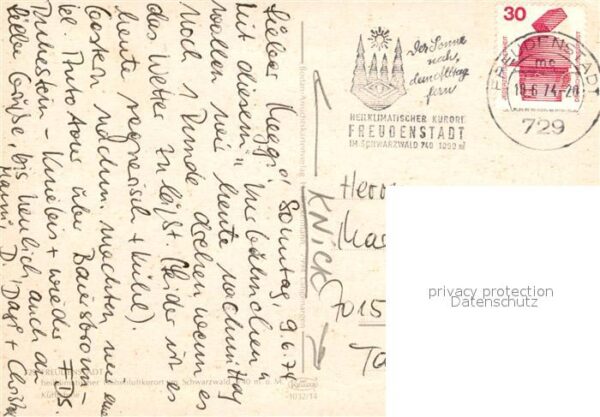 Sonntag, 9.6.74
Lieber Meggi!
Mit diesem "Umbähnchen"
wollen wir heute nachmittag
noch 1 Runde drehen, wenn es
das Wetter zuläßt. (Leider ist es
heute regnerisch + kühl).
Gestern nachm. machten wir eine
kl. Auto Tour über Baiersbronn -
Ruhestein - Kniebis + wieder FDS.
Liebe Grüße, bis neulich, auch an
Mami, D. Dagi + Christa
KNICK
Der Sonne
nah,
dem Alltag
fern
HEILKLIMATISCHER KURORT
FREUDENSTADT
IM SCHWARZWALD 740-1000 m
30
FREUDENSTADT
10.6.74-20
729
Herrn
7015
729 FREUDENSTADT
heilklimatischer Höhenluftkurort im Schwarzwald 740 m ü. M.
1032/14
privacy protection
Datenschutz